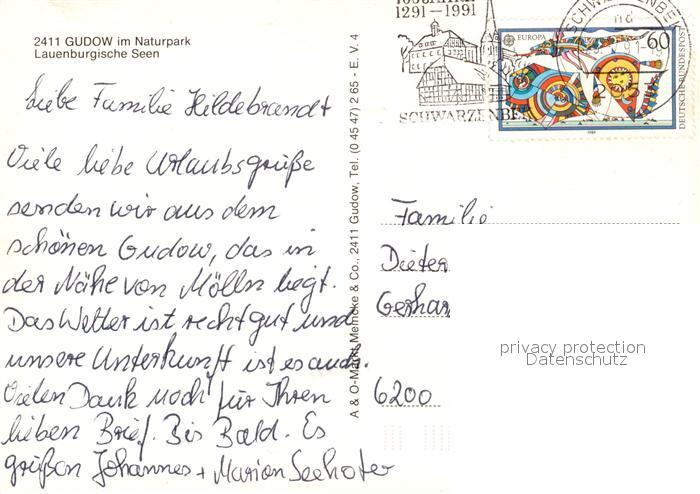 2411 GUDOW im Naturpark
Lauenburgische Seen
Liebe Familie Hildebrandt
Viele liebe Urlaubsgrüße
senden wir aus dem
schönen Gudow, das in
der Nähe von Mölln liegt.
Das Wetter ist recht gut und
unsere Unterkunft ist es auch.
Vielen Dank noch für Ihren
lieben Brief. Bis Bald. Es
grüßen Johannes + Marion Seehofer
A & O-Markt Meincke & Co., 2411 Gudow, Tel. (0 45 47) 2 65 - E. V. 4
1291-1991
SCHWARZENBEK
EUROPA
60
DEUTSCHE BUNDESPOST
Familie
Dieter
Gerhar
6200
privacy protection
Datenschutz